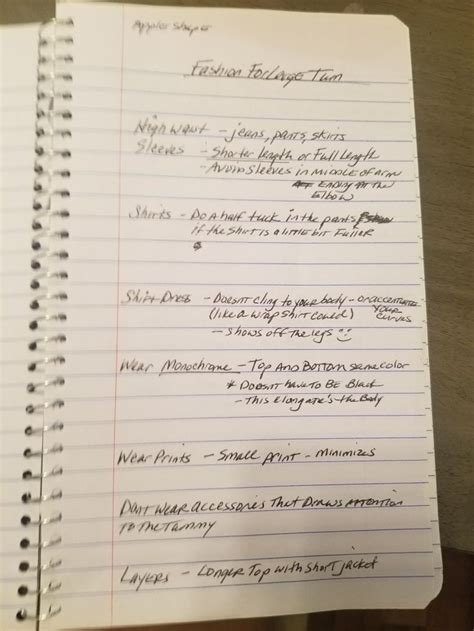 Appler Shaper
Fashion For Large Tum
High Waist - jeans, pants, skirts
Sleeves - Shorter length or Full Length
- Avoid Sleeves in MIDDLE of arm
Ending at the
Elbow
Shirts - Do A half tuck in the pants
If the shirt is a little bit Fuller
Shirt Dress - Doesn't cling to your body - or accentuates
(like a wrap shirt could) your curves
- Shows off the legs :)
Wear Monochrome - Top And Bottom same color
* Doesn't have to BE Black
- This Elongate's the Body
Wear Prints - Small print - minimizes
Dont wear accessories That Draws Attention
To the Tummy
Layers - Longer Top with short jacket